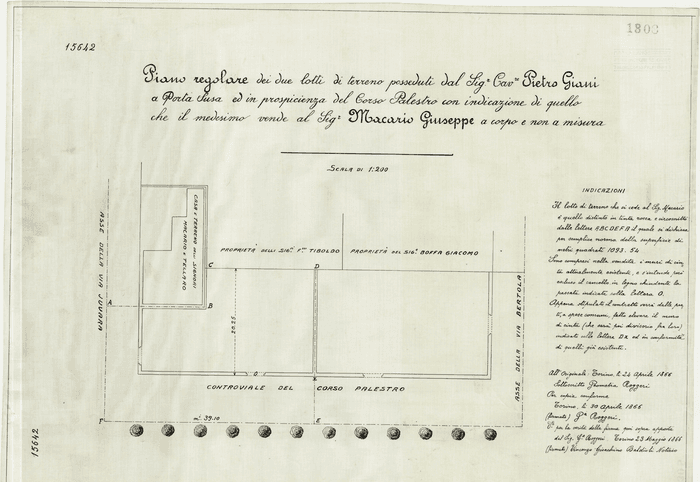 15642
1303
Piano regolare dei due lotti di terreno posseduti dal Sig.r Cav.re Pietro Giani
a Porta Susa ed in prospicienza del Corso Palestro con indicazione di quello
che il medesimo vende al Sig.r Macario Giuseppe a corpo e non a misura
SCALA DI 1:200
INDICAZIONI
Il lotto di terreno che si vede al Sig. Macario
è quello distinto in tinta rossa e circoscritto
dalle lettere ABCDEFA il quale si dichiara
per semplice norma della superficie di
metri quadrati 1093.54
Sono compresi nella vendita i muri di cin-
ta attualmente esistenti, e s'intende poi
escluso il cancello in legno chiudente la
passata indicata colla lettera O.
Appena stipulato il contratto verrà dalle par-
ti, a spese comuni, fatto elevare il muro
di cinta (che sarà poi divisorio fra loro)
indicato colle lettere DX ed in conformità
di quelli già esistenti.
All'Originale: Torino, li 24 Aprile 1866
Sottoscritto Geometra Roggeri
Per copia conforme
Torino, li 30 Aprile 1866
(firmato) G.a Roggeri.
V.o per la verità della firma qui sopra apposta
del Sig. G.a Roggeri Torino 23 Maggio 1866
(firmato) Vincenzo Gioachino Baldioli Notaio
CASA E TERRENO DELLI SIGNORI
MACARIO E PELLARO
PROPRIETÀ DELLI SIG.ri F.lli TIBOLDO
PROPRIETÀ DEL SIG.r BOFFA GIACOMO
ASSE DELLA VIA JUVARA
ASSE DELLA VIA BERTOLA
C
D
A
B
20.25
O
X
CONTROVIALE DEL CORSO PALESTRO
m.i 39.10
F
E
15642